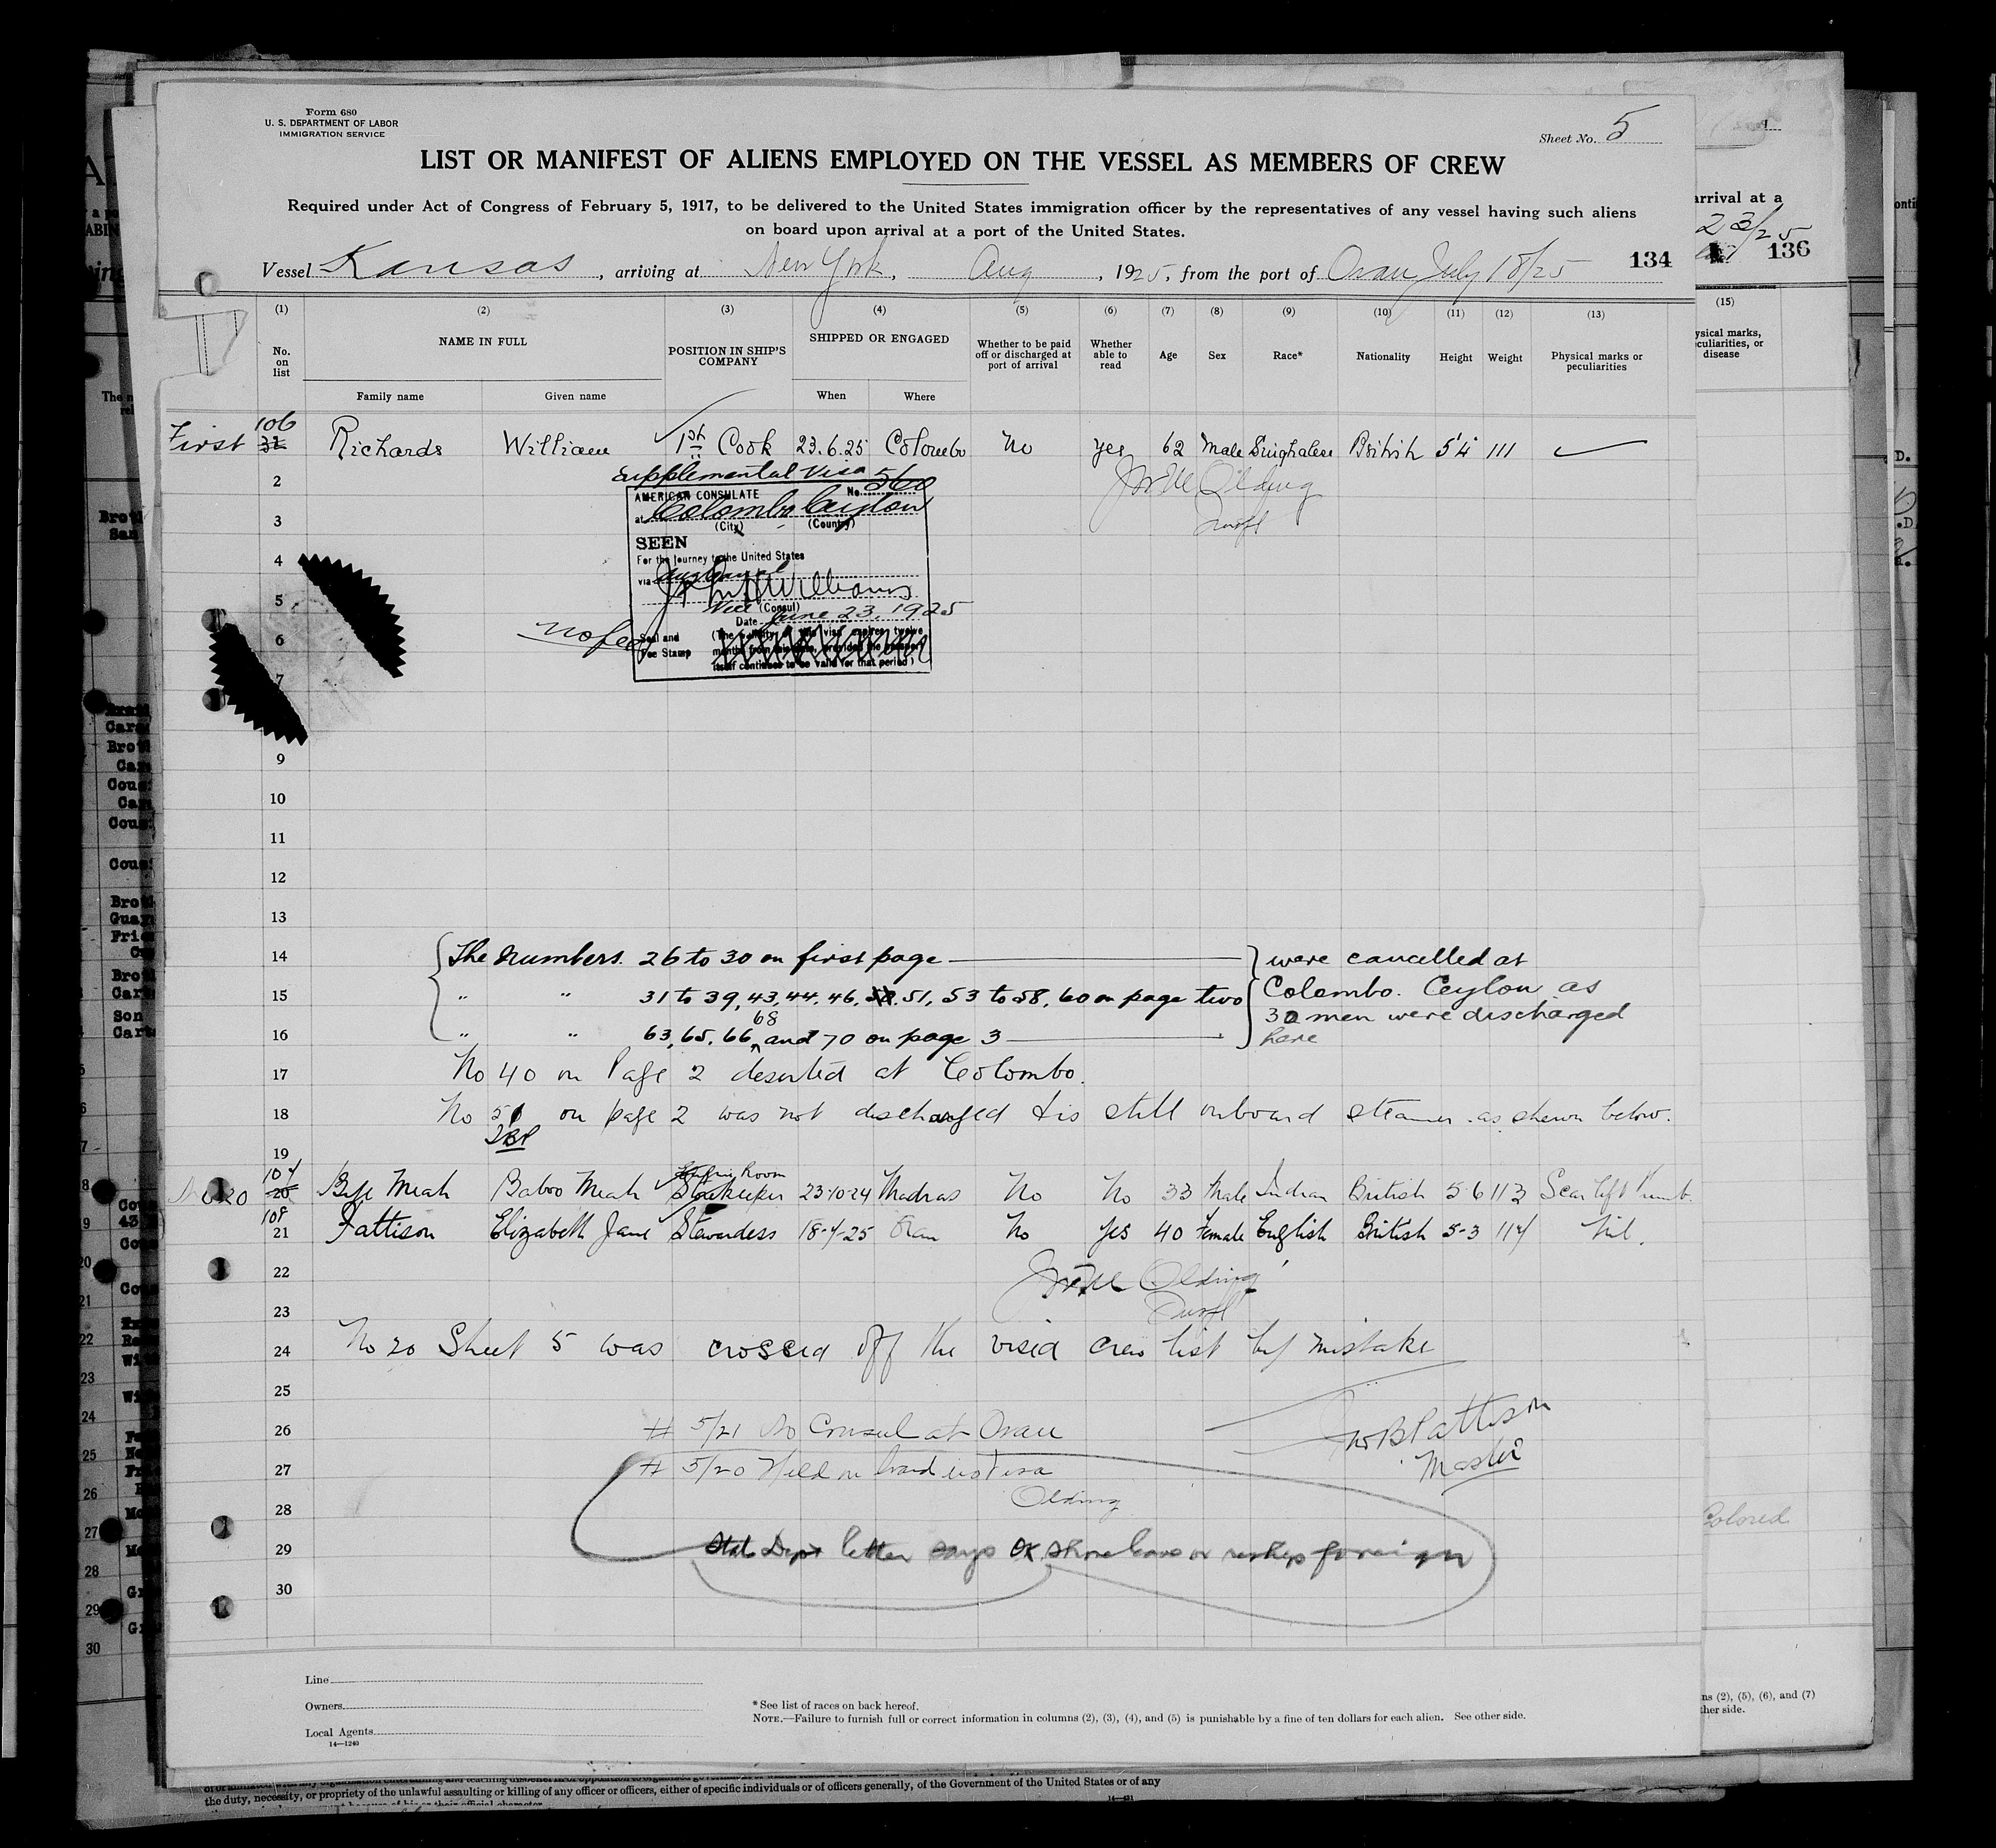 Form 680
U. S. DEPARTMENT OF LABOR
IMMIGRATION SERVICE
Sheet No. 5
LIST OR MANIFEST OF ALIENS EMPLOYED ON THE VESSEL AS MEMBERS OF CREW
Required under Act of Congress of February 5, 1917, to be delivered to the United States immigration officer by the representatives of any vessel having such aliens
on board upon arrival at a port of the United States.
arrival at a
23/25
Vessel Kansas, arriving at New York, Aug, 1925, from the port of Oran July 18/25 134
136
(1) (2) (3) (4) (5) (6) (7) (8) (9) (10) (11) (12) (13) (15)
No. on list NAME IN FULL POSITION IN SHIP'S COMPANY SHIPPED OR ENGAGED Whether to be paid off or discharged at port of arrival Whether able to read Age Sex Race* Nationality Height Weight Physical marks or peculiarities
Family name Given name When Where
First 106 Richards William 1st Cook 23.6.25 Colombo No yes 62 Male Singhalese British 5'4 111
Supplemental Visa
2 AMERICAN CONSULATE No. 560
at Colombo Ceylon
3 (City) (Country)
SEEN
4 For the journey to the United States
via
5 Williams
Vice (Consul)
Date June 23, 1925
6 No fee Seal and Fee Stamp (The validity of this visa expires twelve
months from this date, provided the passport
itself continues to be valid for that period)
7
9
10
11
12
13
14 The numbers 26 to 30 on first page were cancelled at
15 " " 31 to 39, 43, 44, 46, 51, 53 to 58, 60 on page two Colombo. Ceylon as
30 men were discharged
16 " " 63, 65, 66, 68 and 70 on page 3 here
17 No 40 on Page 2 deserted at Colombo.
18 No 51 on page 2 was not discharged & is still onboard steamer as shewn below.
19
107 20 Meah Baboo Meah Room Storekeeper 23-10-24 Madras No No 33 Male Indian British 5-6 113 Scar left thumb.
108
21 Pattison Elizabeth Jane Stewardess 18-7-25 Oran No Yes 40 Female English British 5-3 117 Nil.
22 Olding
23
24 No 20 Sheet 5 was crossed off the visid crew list by mistake
25
26 # 5/21 No Consul at Oran Jno B Pattison
27 # 5/20 Held on board no visa Master
28 Olding
29 State Dept letter says OK shore leave or reship foreign
30
Colored
Line
Owners
Local Agents
14—1240
*See list of races on back hereof.
NOTE.—Failure to furnish full or correct information in columns (2), (3), (4), and (5) is punishable by a fine of ten dollars for each alien. See other side.
the duty, necessity, or propriety of the unlawful assaulting or killing of any officer or officers, either of specific individuals or of officers generally, of the Government of the United States or of any